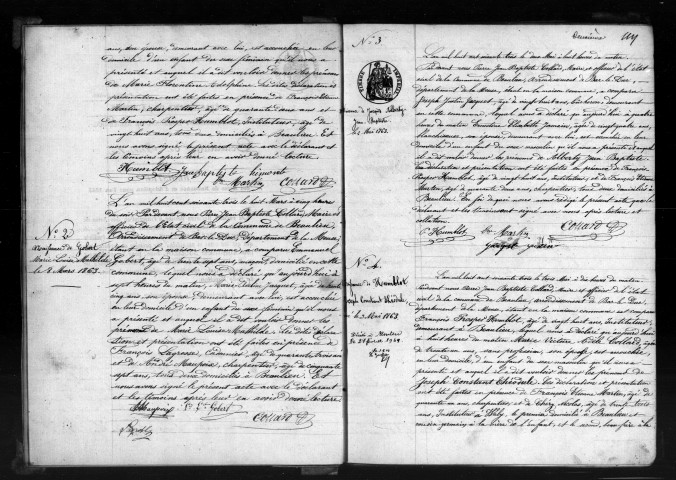 an, son épouse, demeurant avec lui, est accouchée en leur
domicile d'un enfant du sexe féminin qu'il nous a
présenté et auquel il a dit vouloir donner les prénoms
de Marie Florentine Adelphine. Les dites déclaration et
présentation ont été faites en présence de
Martin, charpentier, âgé de quarante ans et
de François Prosper Humblot, Instituteur, âgé de
vingt huit ans, tous deux domiciliés à Beaulieu. Et
nous avons signé le présent acte avec le déclarant et
les témoins après leur en avoir donné lecture.
Humblot Jean Baptiste
Martin Collard
N° 2
Naissance de Gobert
Marie Louise Mathilde
le 8 Mars 1863.
L'an mil huit cent soixante trois le huit Mars à cinq heures
du soir. Pardevant nous Pierre Jean Baptiste Collard, Maire et
officier de l'état civil de la Commune de Beaulieu,
Arrondissement de Bar-le-Duc, Département de la Meuse,
étant en la maison commune, a comparu Emmanuel
Gobert, âgé de trente sept ans, maçon, domicilié en cette
commune, lequel nous a déclaré qu'aujourd'hui à
sept heures du matin, Marie Julie Jacquet, âgée de trente
cinq ans son épouse, demeurant avec lui, est accouchée
en leur domicile d'un enfant du sexe féminin qu'il nous
a présenté et auquel il a dit vouloir donner les
prénoms de Marie Louise Mathilde. Les dites déclara-
tion et présentation ont été faites en présence de
François Lagrosse, Cabaretier, âgé de quarante trois ans
et de André Maupoix, charpentier, âgé de cinquante
sept ans, tous deux domiciliés à Beaulieu. Et
nous avons signé le présent acte avec le déclarant
et les témoins après leur en avoir donné lecture.
Maupoix Gobert
Collard
N° 3
Naissance de Jacquet Alberty
Jean Baptiste
le 2 Mai 1863.
Deuxième
L'an mil huit cent soixante trois le deux Mai à huit heures du matin
Pardevant nous Pierre Jean Baptiste Collard, Maire et officier de l'état
civil de la Commune de Beaulieu, arrondissement de Bar le Duc,
département de la Meuse, étant en la maison commune, a comparu
Joseph Justin Jacquet, âgé de vingt huit ans, bucheron, demeurant
en cette commune, lequel nous a déclaré qu'aujourd'hui à quatre
heures du matin Elisabeth Jannin, âgée de vingt quatre ans,
blanchisseuse, son épouse, demeurant avec lui, est accouchée en leur
domicile d'un enfant du sexe masculin qu'il nous a présenté et auquel
il a dit vouloir donner les prénoms de Alberty Jean Baptiste.
Les déclaration et présentation ont été faites en présence de François
Prosper Humblot, âgé de vingt huit ans, Instituteur, et de François Etienne
Martin, âgé de quarante deux ans, charpentier, tous deux domiciliés à
Beaulieu. En foi de quoi nous avons rédigé le présent acte que le
déclarant et les témoins ont signé avec nous après lecture et
collation.
Collard
P. Humblot Martin
Jacquet Justin
N° 4
Naissance de Humblot
Joseph Constant Théodule
le 3 Mai 1863
L'an mil huit cent soixante trois le trois Mai à dix heures du matin
pardevant nous Pierre Jean Baptiste Collard, Maire et officier de l'état
civil de la commune de Beaulieu, arrondissement de Bar-le-Duc,
département de la Meuse étant en la maison commune, est comparu
François Prosper Humblot, âgé de vingt huit ans, Instituteur,
demeurant à Beaulieu, lequel nous a déclaré qu'aujourd'hui
à huit heures du matin Marie Victoire Collard, âgée
de trente un ans, sans profession, son épouse, est accouchée
en leur domicile, d'un enfant du sexe masculin, qu'il nous a
présenté et auquel il a dit vouloir donner les prénoms de
Joseph Constant Théodule. Les déclaration et présentation
ont été faites en présence de François Etienne Martin, âgé de
quarante deux ans, charpentier, et de Nicolas, âgé de vingt trois
ans, Instituteur à, le premier domicilié à Beaulieu et
cousin germain à la mère de l'enfant, et le second,